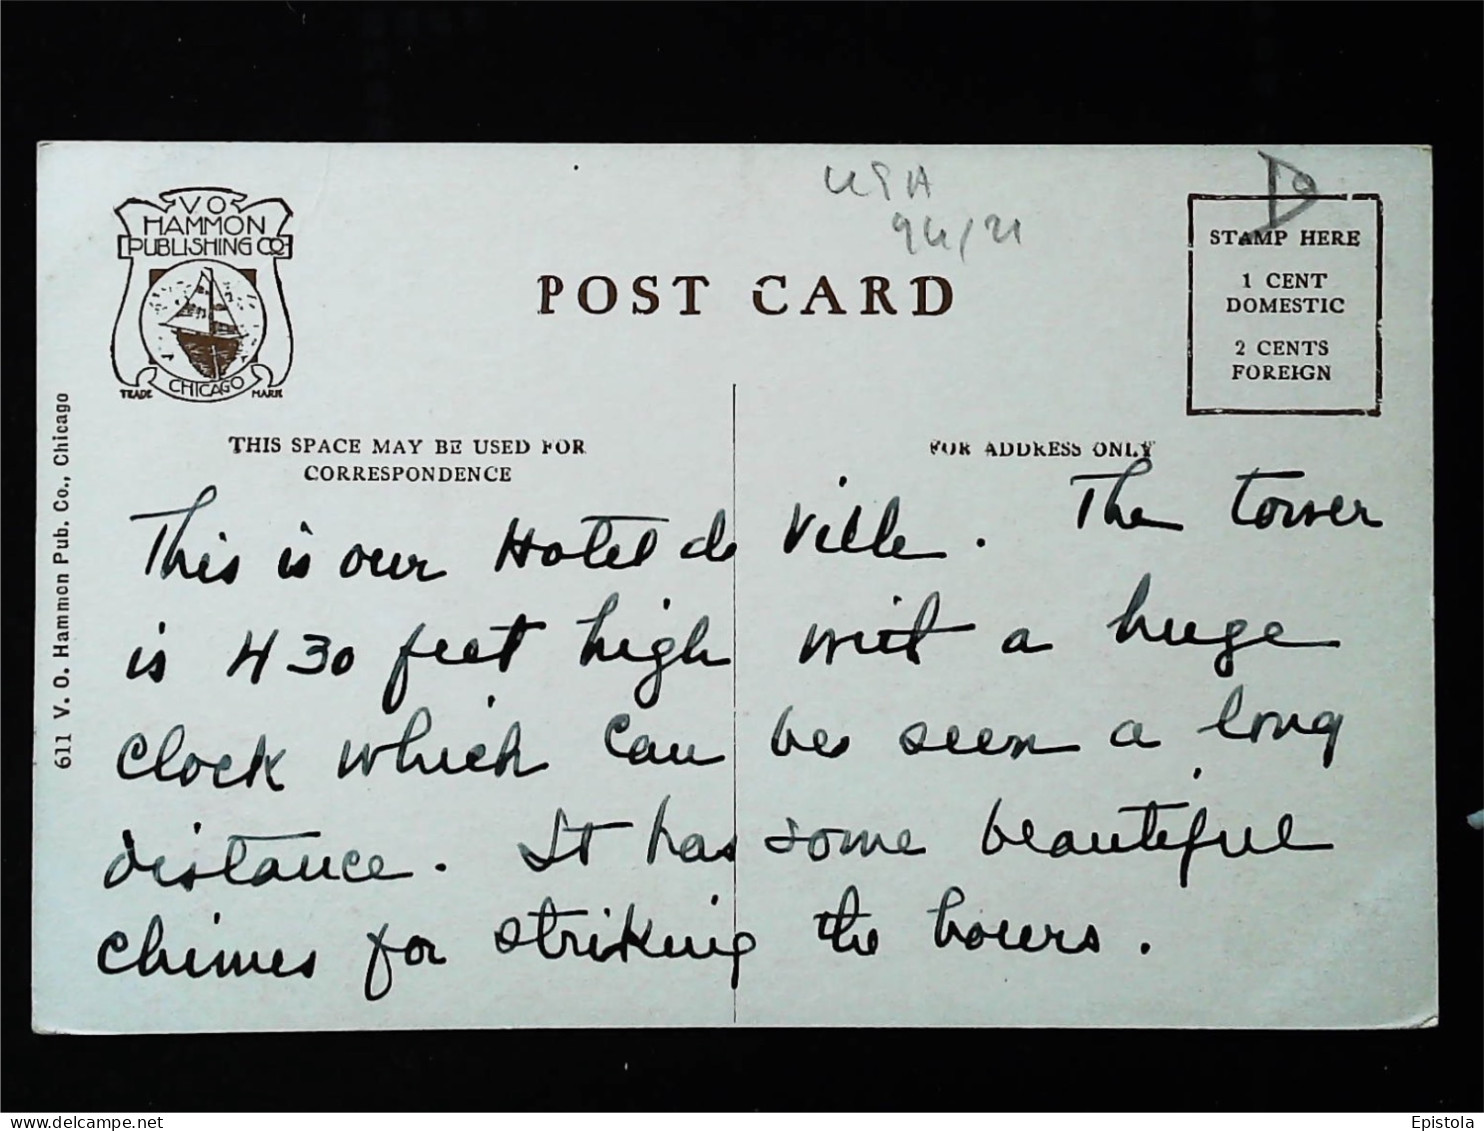 V. O.
HAMMON
PUBLISHING CO.
CHICAGO
TRADE MARK
USA
94/21
POST CARD
STAMP HERE
1 CENT
DOMESTIC
2 CENTS
FOREIGN
611 V. O. Hammon Pub. Co., Chicago
THIS SPACE MAY BE USED FOR
CORRESPONDENCE
FOR ADDRESS ONLY
This is our Hotel de Ville. The tower
is 430 feet high wit a huge
clock which can be seen a long
distance. It has some beautiful
chimes for striking the hours.
delcampe.net
Epistola